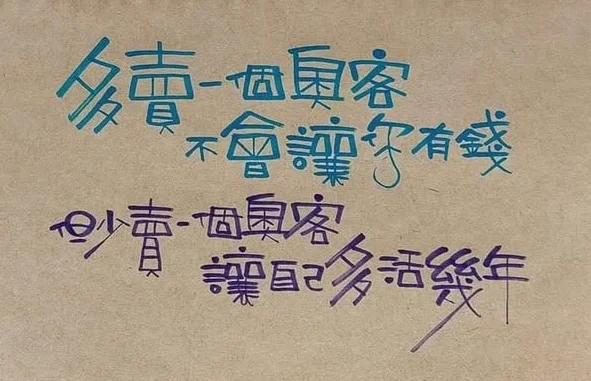 多賣一個奧客
不會讓你有錢
但少賣一個奧客
讓自己多活幾年